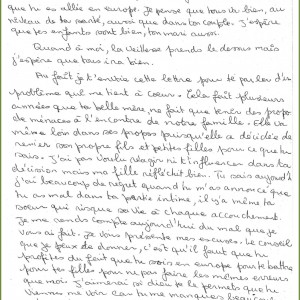 que tu es allée en europe. Je pense que tous va bien, au
niveau de ta santé, aussi que dans ta couple. J'espère
que tes enfants vont bien, ton mari aussi.
Quand à moi, la vieillesse prends le dessus mais
j'espère que tous ira bien.
Au fait je t'envoie cette lettre pour te parler d'un
problème qui me tient à coeur. Cela fait plusieurs
années que ta belle mère, ne fait que tenir des propos
de menaces à l'encontre de notre famille. Elle va
même loin dans ses propos puisqu'elle a décidée de
renier son propre fils et petites filles pour ce que tu
sais. J'ai pas voulu réagir ni t'influencer dans ta
décision mais ma fille réfléchit bien. Tu sais aujourd'hui
j'ai beaucoup de regret quand tu m'as annoncé que
tu as mal dans ta partie intime, il y'a même ta
soeur qui risque sa vie à chaque accouchement.
Je me rends compte aujourd'hui du mal que je
vous ai fait. Je vous présente mes excuses. Le conseil
que je peux de donner, c'est qu'il faut que tu
profites du fait que tu sois en europe pour te battre
pour tes filles pour ne pas faire les mêmes erreurs
que moi. J'aimerai si dieu te le permets que tu
vienne me voir car tu me manques beaucoup